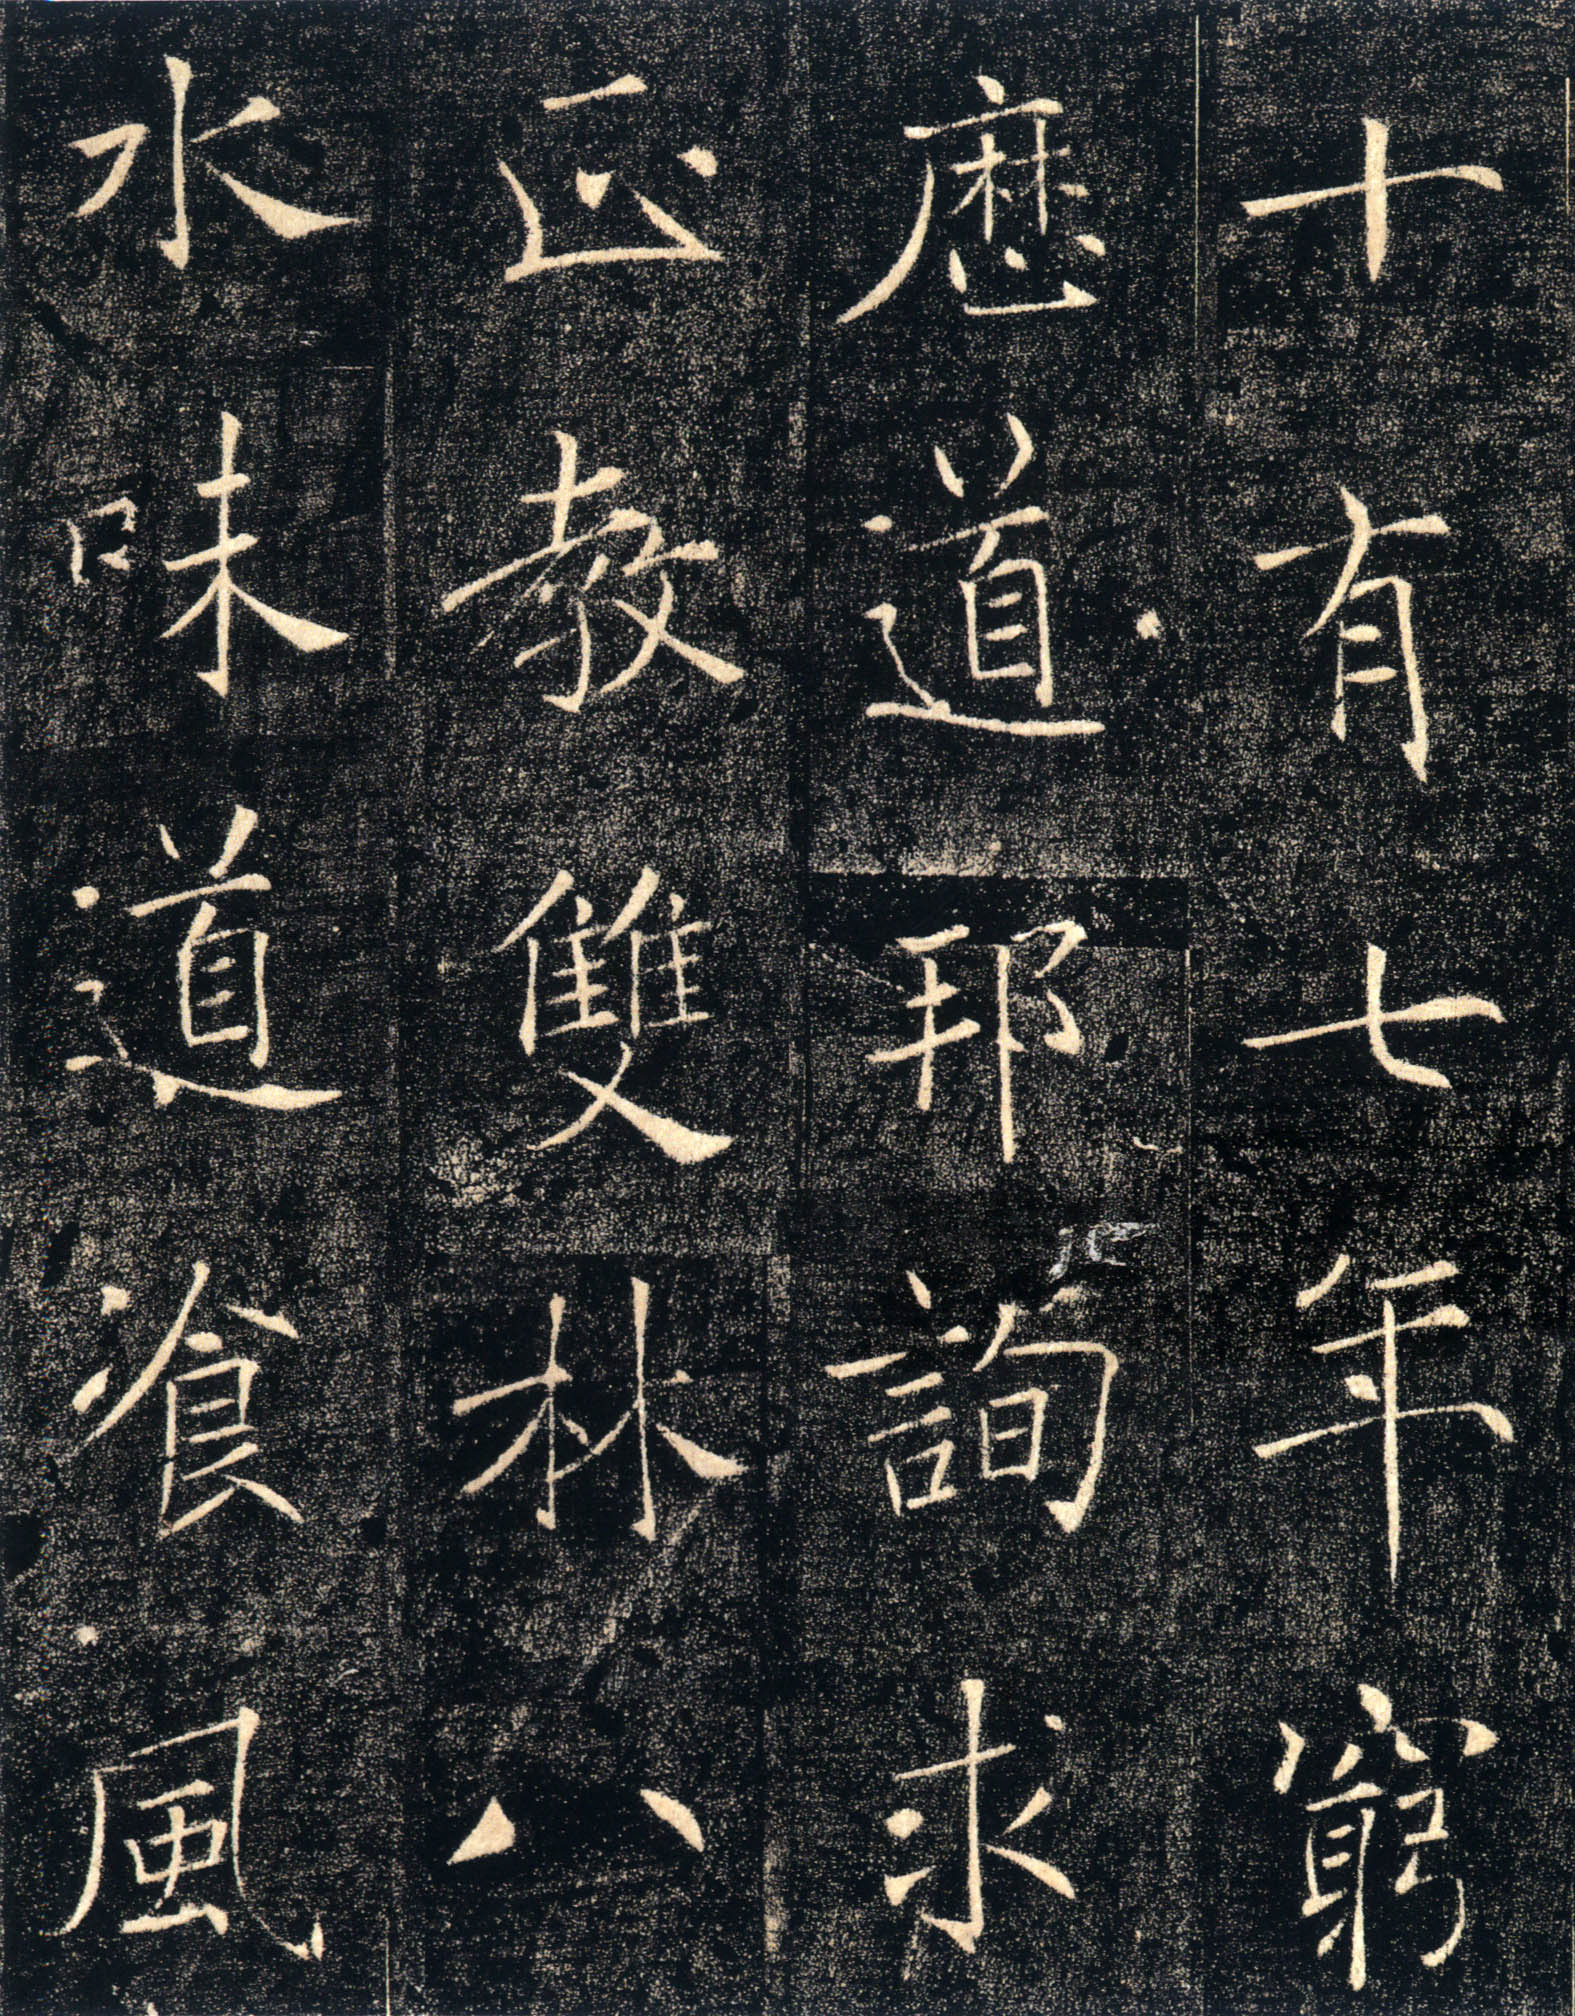 十有七年窮
歷道邪詢求
正教雙林八
水味道飡風